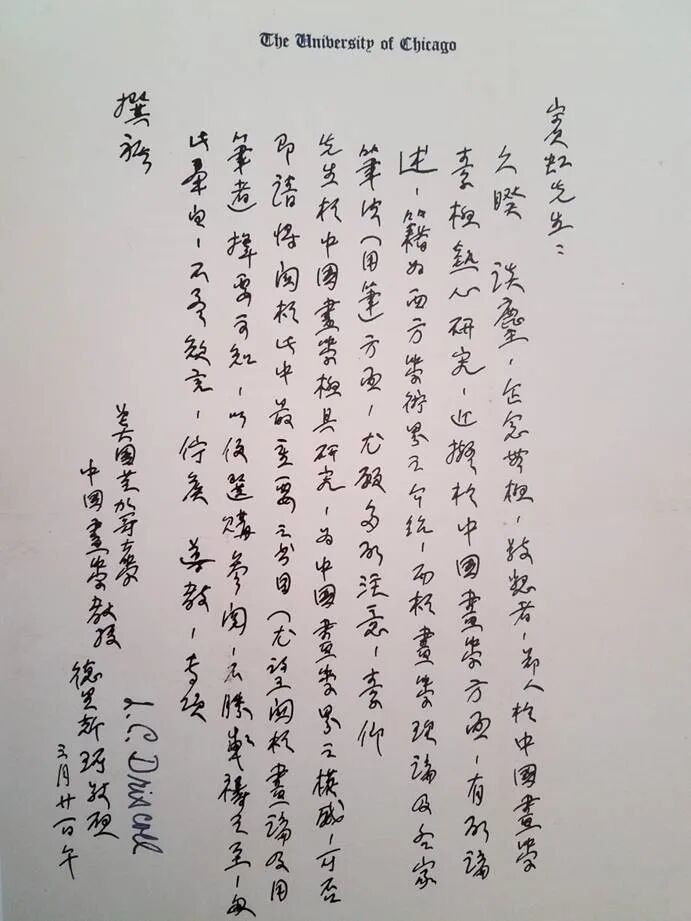 The University of Chicago
賓虹先生：
久睽 談麈，企念無極，敬懇者，鄙人於中國畫學
素極熱心研究，近擬於中國畫學方面，有所論
述，籍為西方學術界之介紹，而於畫學理論及各家
筆法（用筆）方面，尤願多所注意，素仰
先生於中國畫學極具研究，為中國畫學界之權威，可否
即請將關於此中最重要之書目（尤望關於畫論及用
筆者）擇要示知，以便選購參閱，不勝感禱之至，匆
此奉白，不盡欲言，佇候 善教，專頌
撰祺
美國芝加哥大學
中國畫學教授 德里斯珂敬啟
L. C. Driscoll
三月廿一日午